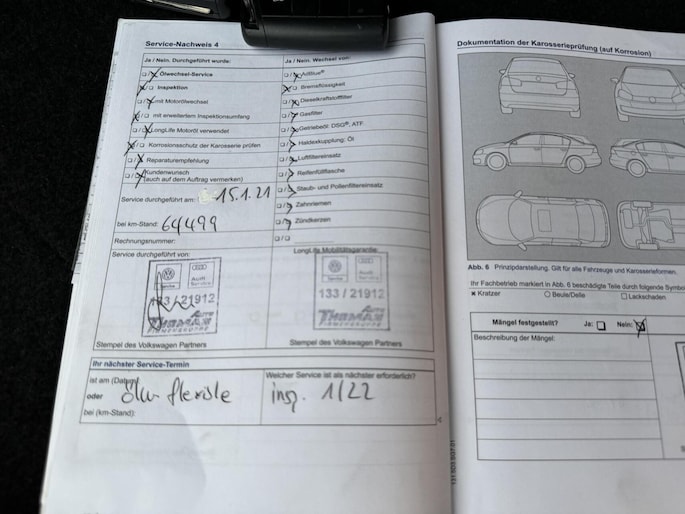 Service-Nachweis 4
Ja / Nein: Durchgeführt wurde:
Ölwechsel-Service
Inspektion
mit Motorölwechsel
mit erweitertem Inspektionsumfang
LongLife Motoröl verwendet
Korrosionsschutz der Karosserie prüfen
Reparaturempfehlung
Kundenwunsch
(auch auf dem Auftrag vermerken)
Service durchgeführt am: 15.1.21
bei km-Stand: 64499
Rechnungsnummer:
Service durchgeführt von:
Audi
Service
133/21912
THOMAS
Stempel des Volkswagen Partners
Ja / Nein: Wechsel von:
AdBlue®
Bremsflüssigkeit
Dieselkraftstofffilter
Gasfilter
Getriebeöl: DSG®, ATF
Haldexkupplung: Öl
Luftfiltereinsatz
Reifenfüllflasche
Staub- und Pollenfiltereinsatz
Zahnriemen
Zündkerzen
LongLife Mobilitätsgarantie:
Audi
Service
133/21912
THOMAS
Stempel des Volkswagen Partners
Ihr nächster Service-Termin
ist am (Datum)
oder Ölw flexible
bei (km-Stand):
Welcher Service ist als nächster erforderlich?
insp. 1/22
Dokumentation der Karosserieprüfung (auf Korrosion)
Abb. 6 Prinzipdarstellung. Gilt für alle Fahrzeuge und Karosserieformen.
Ihr Fachbetrieb markiert in Abb. 6 beschädigte Teile durch folgende Symbo
× Kratzer
Beule/Delle
Lackschaden
Mängel festgestellt? Ja: Nein:
Beschreibung der Mängel: